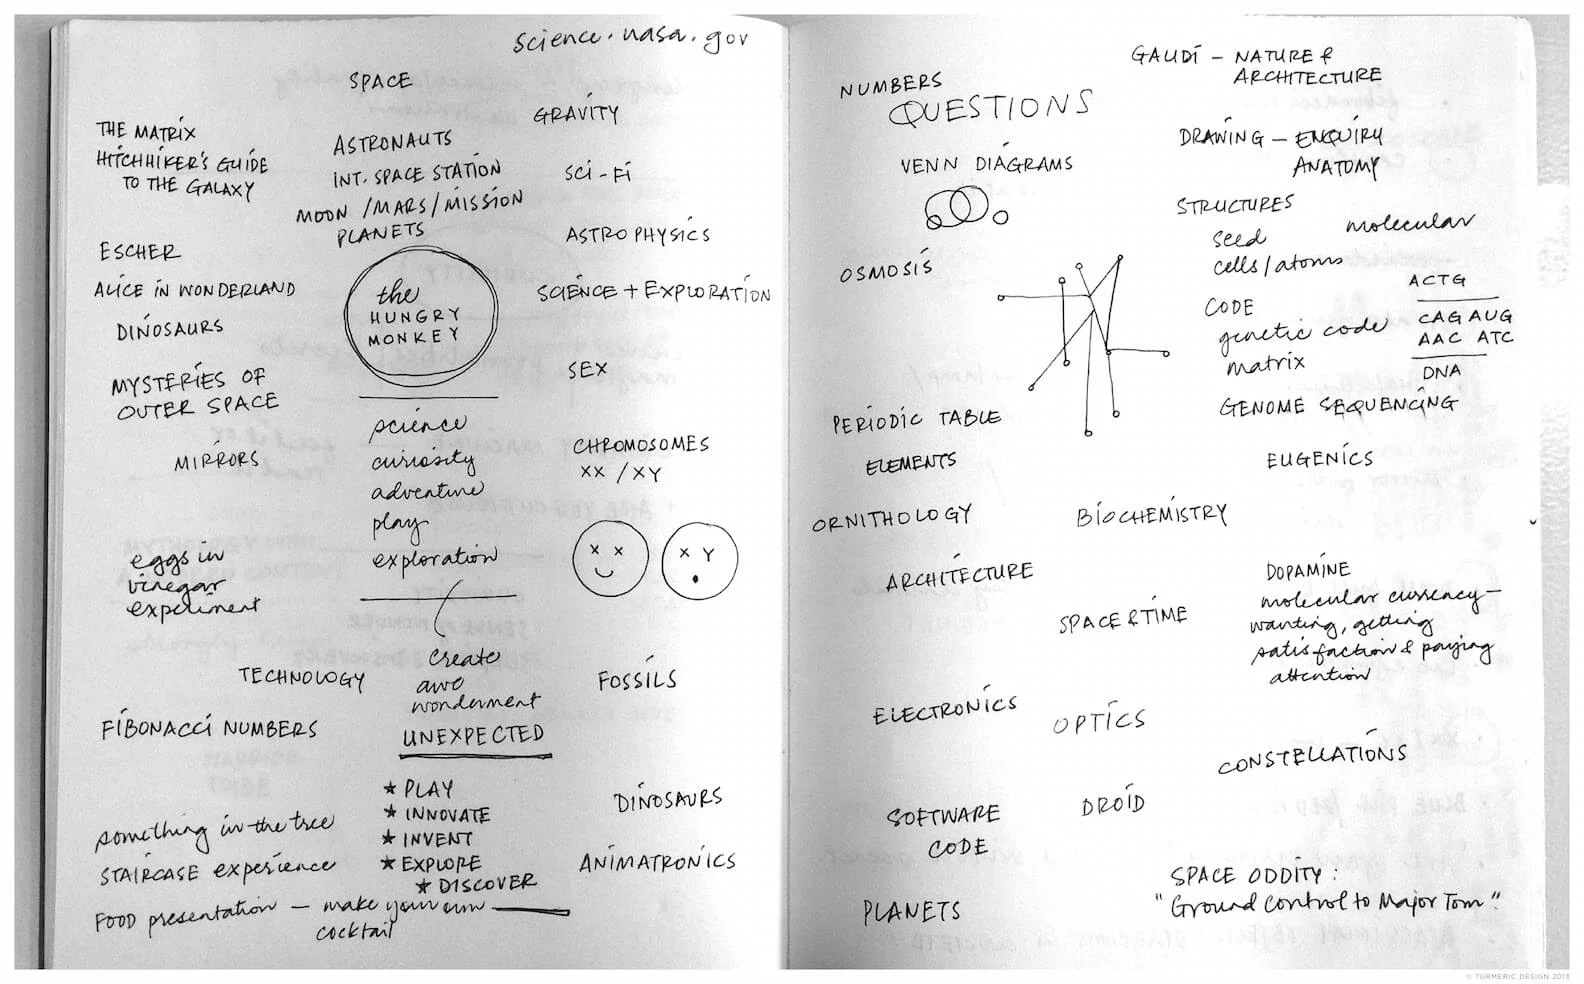 science.nasa.gov
SPACE
GRAVITY
THE MATRIX
HITCHHIKER'S GUIDE
TO THE GALAXY
ASTRONAUTS
INT. SPACE STATION
MOON / MARS / MISSION
PLANETS
SCI-FI
ASTROPHYSICS
ESCHER
ALICE IN WONDERLAND
DINOSAURS
the
HUNGRY
MONKEY
SCIENCE + EXPLORATION
SEX
MYSTERIES OF
OUTER SPACE
MIRRORS
science
curiosity
adventure
play
exploration
CHROMOSOMES
XX / XY
X X
X Y
eggs in
vinegar
experiment
create
awe
wonderment
UNEXPECTED
TECHNOLOGY
FOSSILS
FIBONACCI NUMBERS
★ PLAY
★ INNOVATE
★ INVENT
★ EXPLORE
★ DISCOVER
DINOSAURS
ANIMATRONICS
something in the tree
STAIRCASE experience
FOOD presentation — make your own
cocktail
NUMBERS
QUESTIONS
GAUDÍ — NATURE &
ARCHITECTURE
VENN DIAGRAMS
DRAWING — ENQUIRY
ANATOMY
STRUCTURES
seed
molecular
cells/atoms
OSMOSIS
CODE
genetic code
matrix
ACTG
CAG AUG
AAC ATC
DNA
GENOME SEQUENCING
PERIODIC TABLE
ELEMENTS
EUGENICS
ORNITHOLOGY
BIOCHEMISTRY
ARCHITECTURE
DOPAMINE
molecular currency —
wanting, getting
satisfaction & paying
attention
SPACE & TIME
ELECTRONICS
OPTICS
CONSTELLATIONS
SOFTWARE
CODE
DROID
PLANETS
SPACE ODDITY:
"Ground Control to Major Tom"
© TURMERIC DESIGN 2013